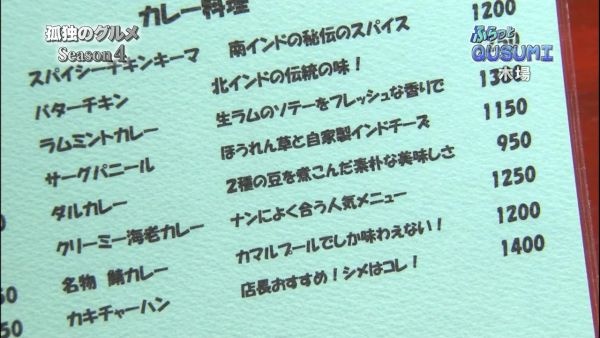 孤独のグルメ
Season 4
ふらっと
QUSUMI
木場
カレー料理
スパイシーチキンキーマ 南インドの秘伝のスパイス 1200
バターチキン 北インドの伝統の味!
ラムミントカレー 生ラムのソテーをフレッシュな香りで
サーグパニール ほうれん草と自家製インドチーズ 1150
ダルカレー 2種の豆を煮こんだ素朴な美味しさ 950
クリーミー海老カレー ナンによく合う人気メニュー 1250
名物 鯖カレー カマルプールでしか味わえない! 1200
カキチャーハン 店長おすすめ!シメはコレ! 1400
50
50